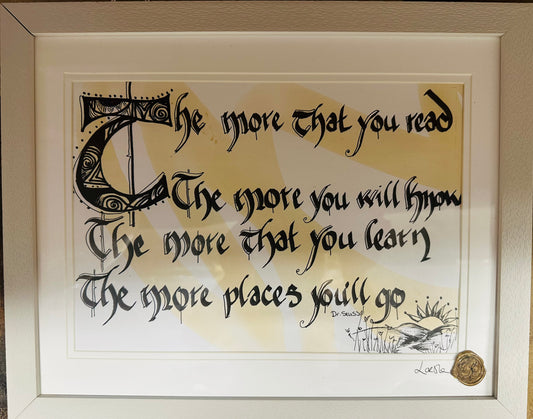 The more that you read
The more you will know
The more that you learn
The more places you'll go
Dr. Seuss